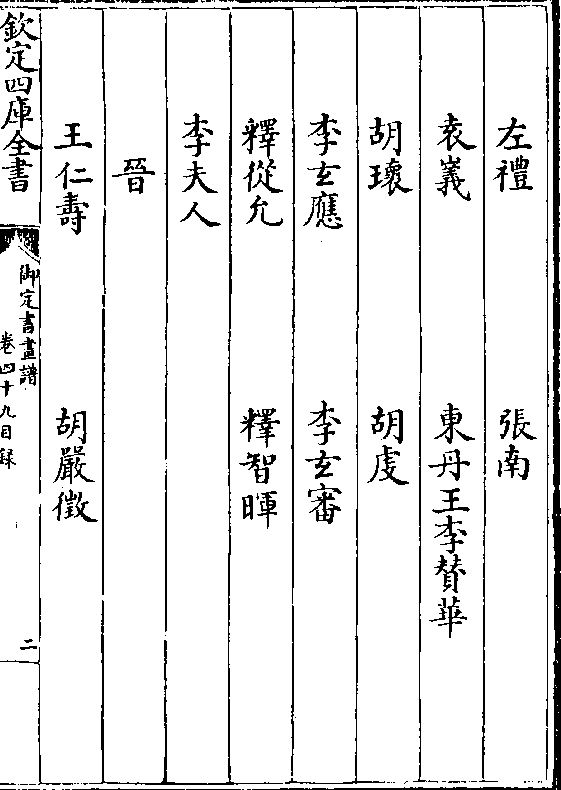 左禮　張南
袁嶬　東丹王李贊華
胡瓌　胡虔
李玄應　李玄審
釋從允　釋智暉
李夫人
晉
王仁壽　胡嚴徵
欽定四庫全書
御定書畫譜
卷四十九目録
二